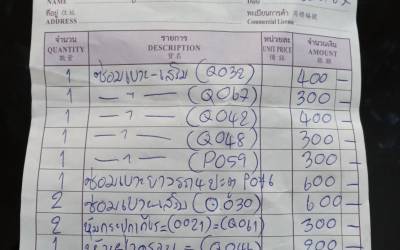 NAME
ที่อยู่ 住址
ADDRESS
Date
ทะเบียนการค้า 商標編號
Commercial License
จำนวน รายการ หน่วยละ จำนวนเงิน
QUANTITY DESCRIPTION UNIT PRICE AMOUNT
數量 貨名 價錢 銀額
1 ซ่อมเบาะ-เสริม (Q032) 400 -
1 — ๆ — (Q067) 300 -
1 — ๆ — (Q042) 400 -
1 — ๆ — (Q048) 300 -
1 — ๆ — (P059) 300 -
1 ซ่อมเบาะยาวรถ 4 ประตู P076 600 -
2 ซ่อมเบาะ-เสริม (Q030) 600 -
2 = (0021) = (Q061) 300 -
1 = (Q046) 900 -